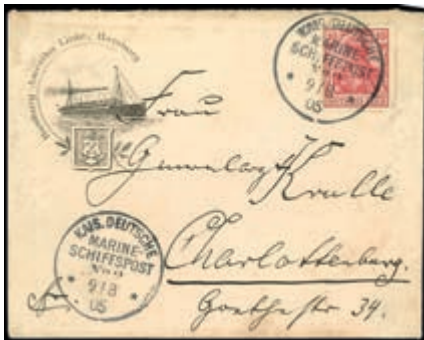 Hamburg Amerika Linie, Hamburg
KAIS. DEUTSCHE
MARINE-
SCHIFFSPOST
9/8
05
Frau
Generalarzt Krulle
Charlottenburg.
Goethestr 34.
KAIS. DEUTSCHE
MARINE-
SCHIFFSPOST
9/8
05